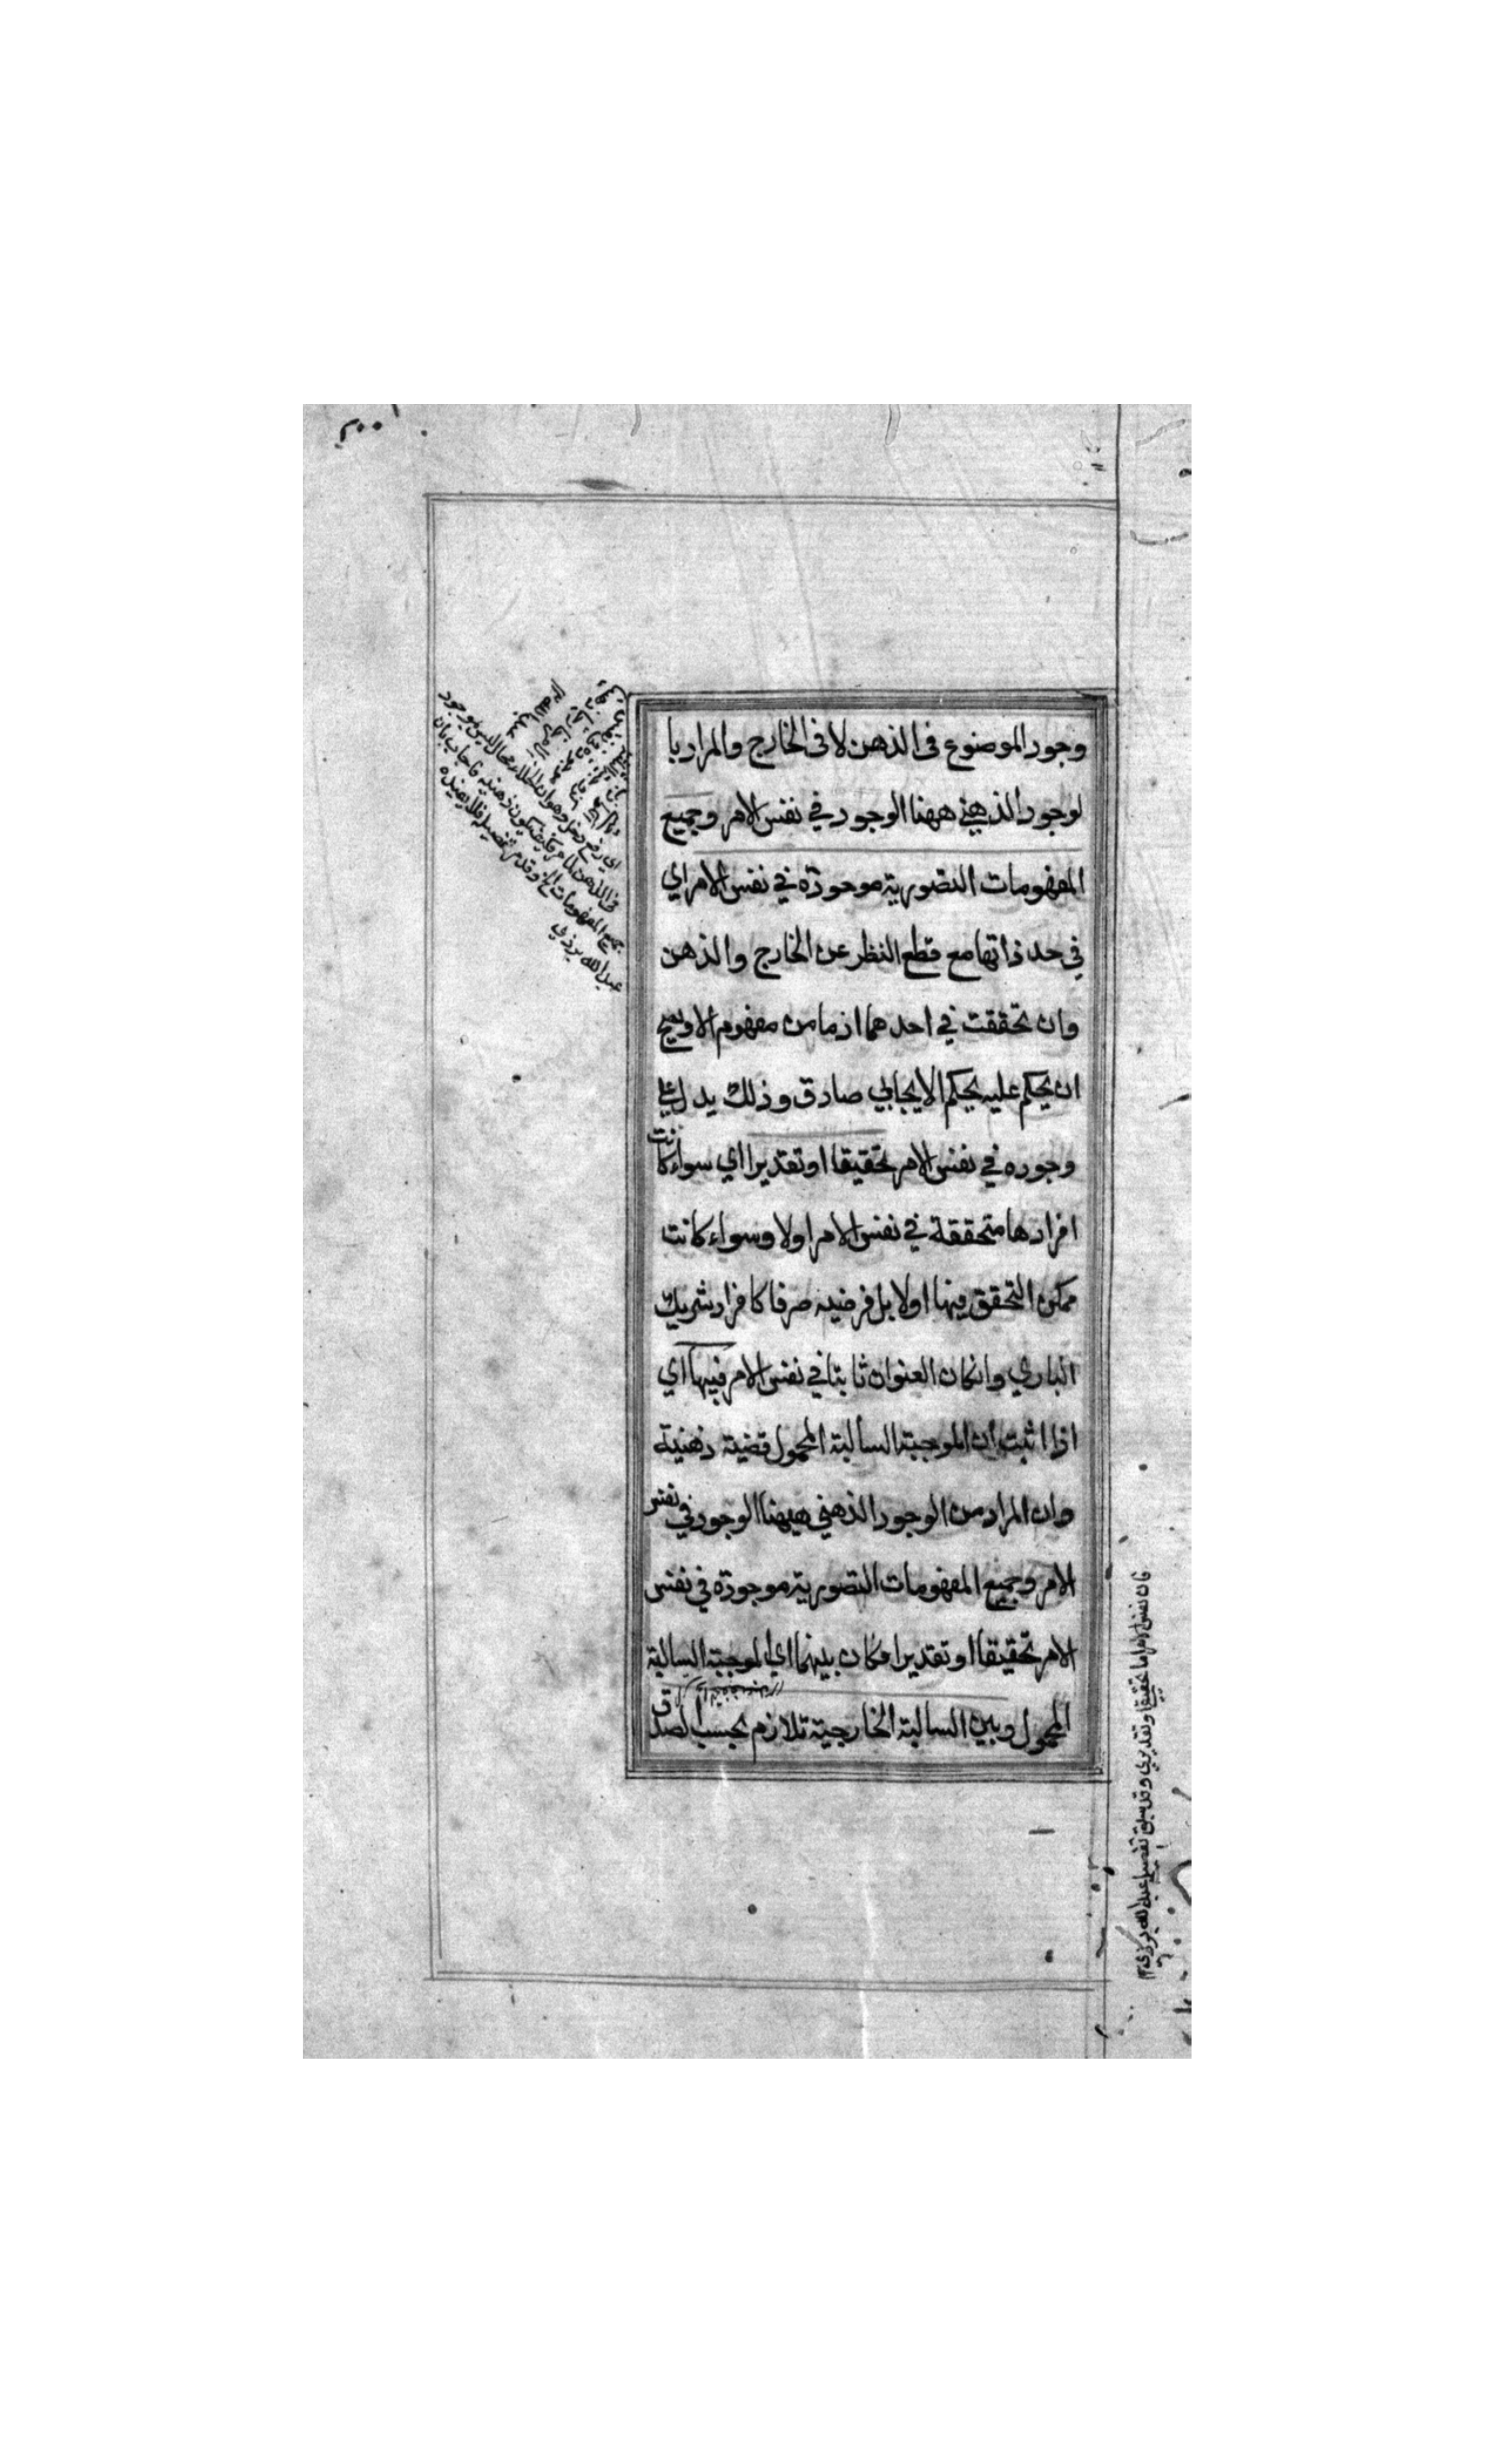 وجود الموضوع فى الذهن لا فى الخارج والمراد با
لوجود الذهني ههنا الوجود في نفس الامر وجميع
المفهومات التصورية موجودة في نفس الامر اي
في حد ذاتها مع قطع النظر عن الخارج والذهن
وان تحققت في احدهما اذ ما من مفهوم الا ويصح
ان يحكم عليه بحكم الايجابي صادق وذلك يدل على
وجوده في نفس الامر تحقيقا او تقديرا اي سواء كانت
افرادها متحققة في نفس الامر او لا وسواء كانت
ممكن التحقق فيها او لا بل فرضيه صرفا كافراد شريك
الباري وانكان العنوان ثابتا في نفس الامر فيها اي
اذا اثبت ان الموجبة السالبة المحمول قضية ذهنية
وان المراد من الوجود الذهني ههنا الوجود في نفس
الامر وجميع المفهومات التصورية موجودة في نفس
الامر تحقيقا او تقديرا فكان بينهما اي الموجبة السالبة
المحمول وبين السالبة الخارجية تلازم بحسب الصدق
اي دفع دخل وهو ان الخلاء محال ليس بموجود
فى الذهن فكيف يكون ذهنيه فاجاب بان
جميع المفهومات الخ وقد مر تفصيله فلا نعيده
عبد الله يزدي
فان نفس الامر اما تحقيقي او تقديري وقد سبق تفصيله عبد الله يزدي ١٢